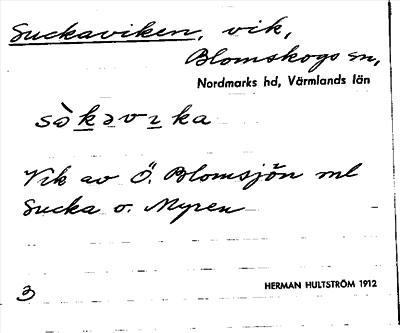 Suckaviken, vik,
Blomskogs sn,
Nordmarks hd, Värmlands län
sòkəvıka
Vik av Ö. Blomsjön ml
Sucka o. Myren
3
HERMAN HULTSTRÖM 1912